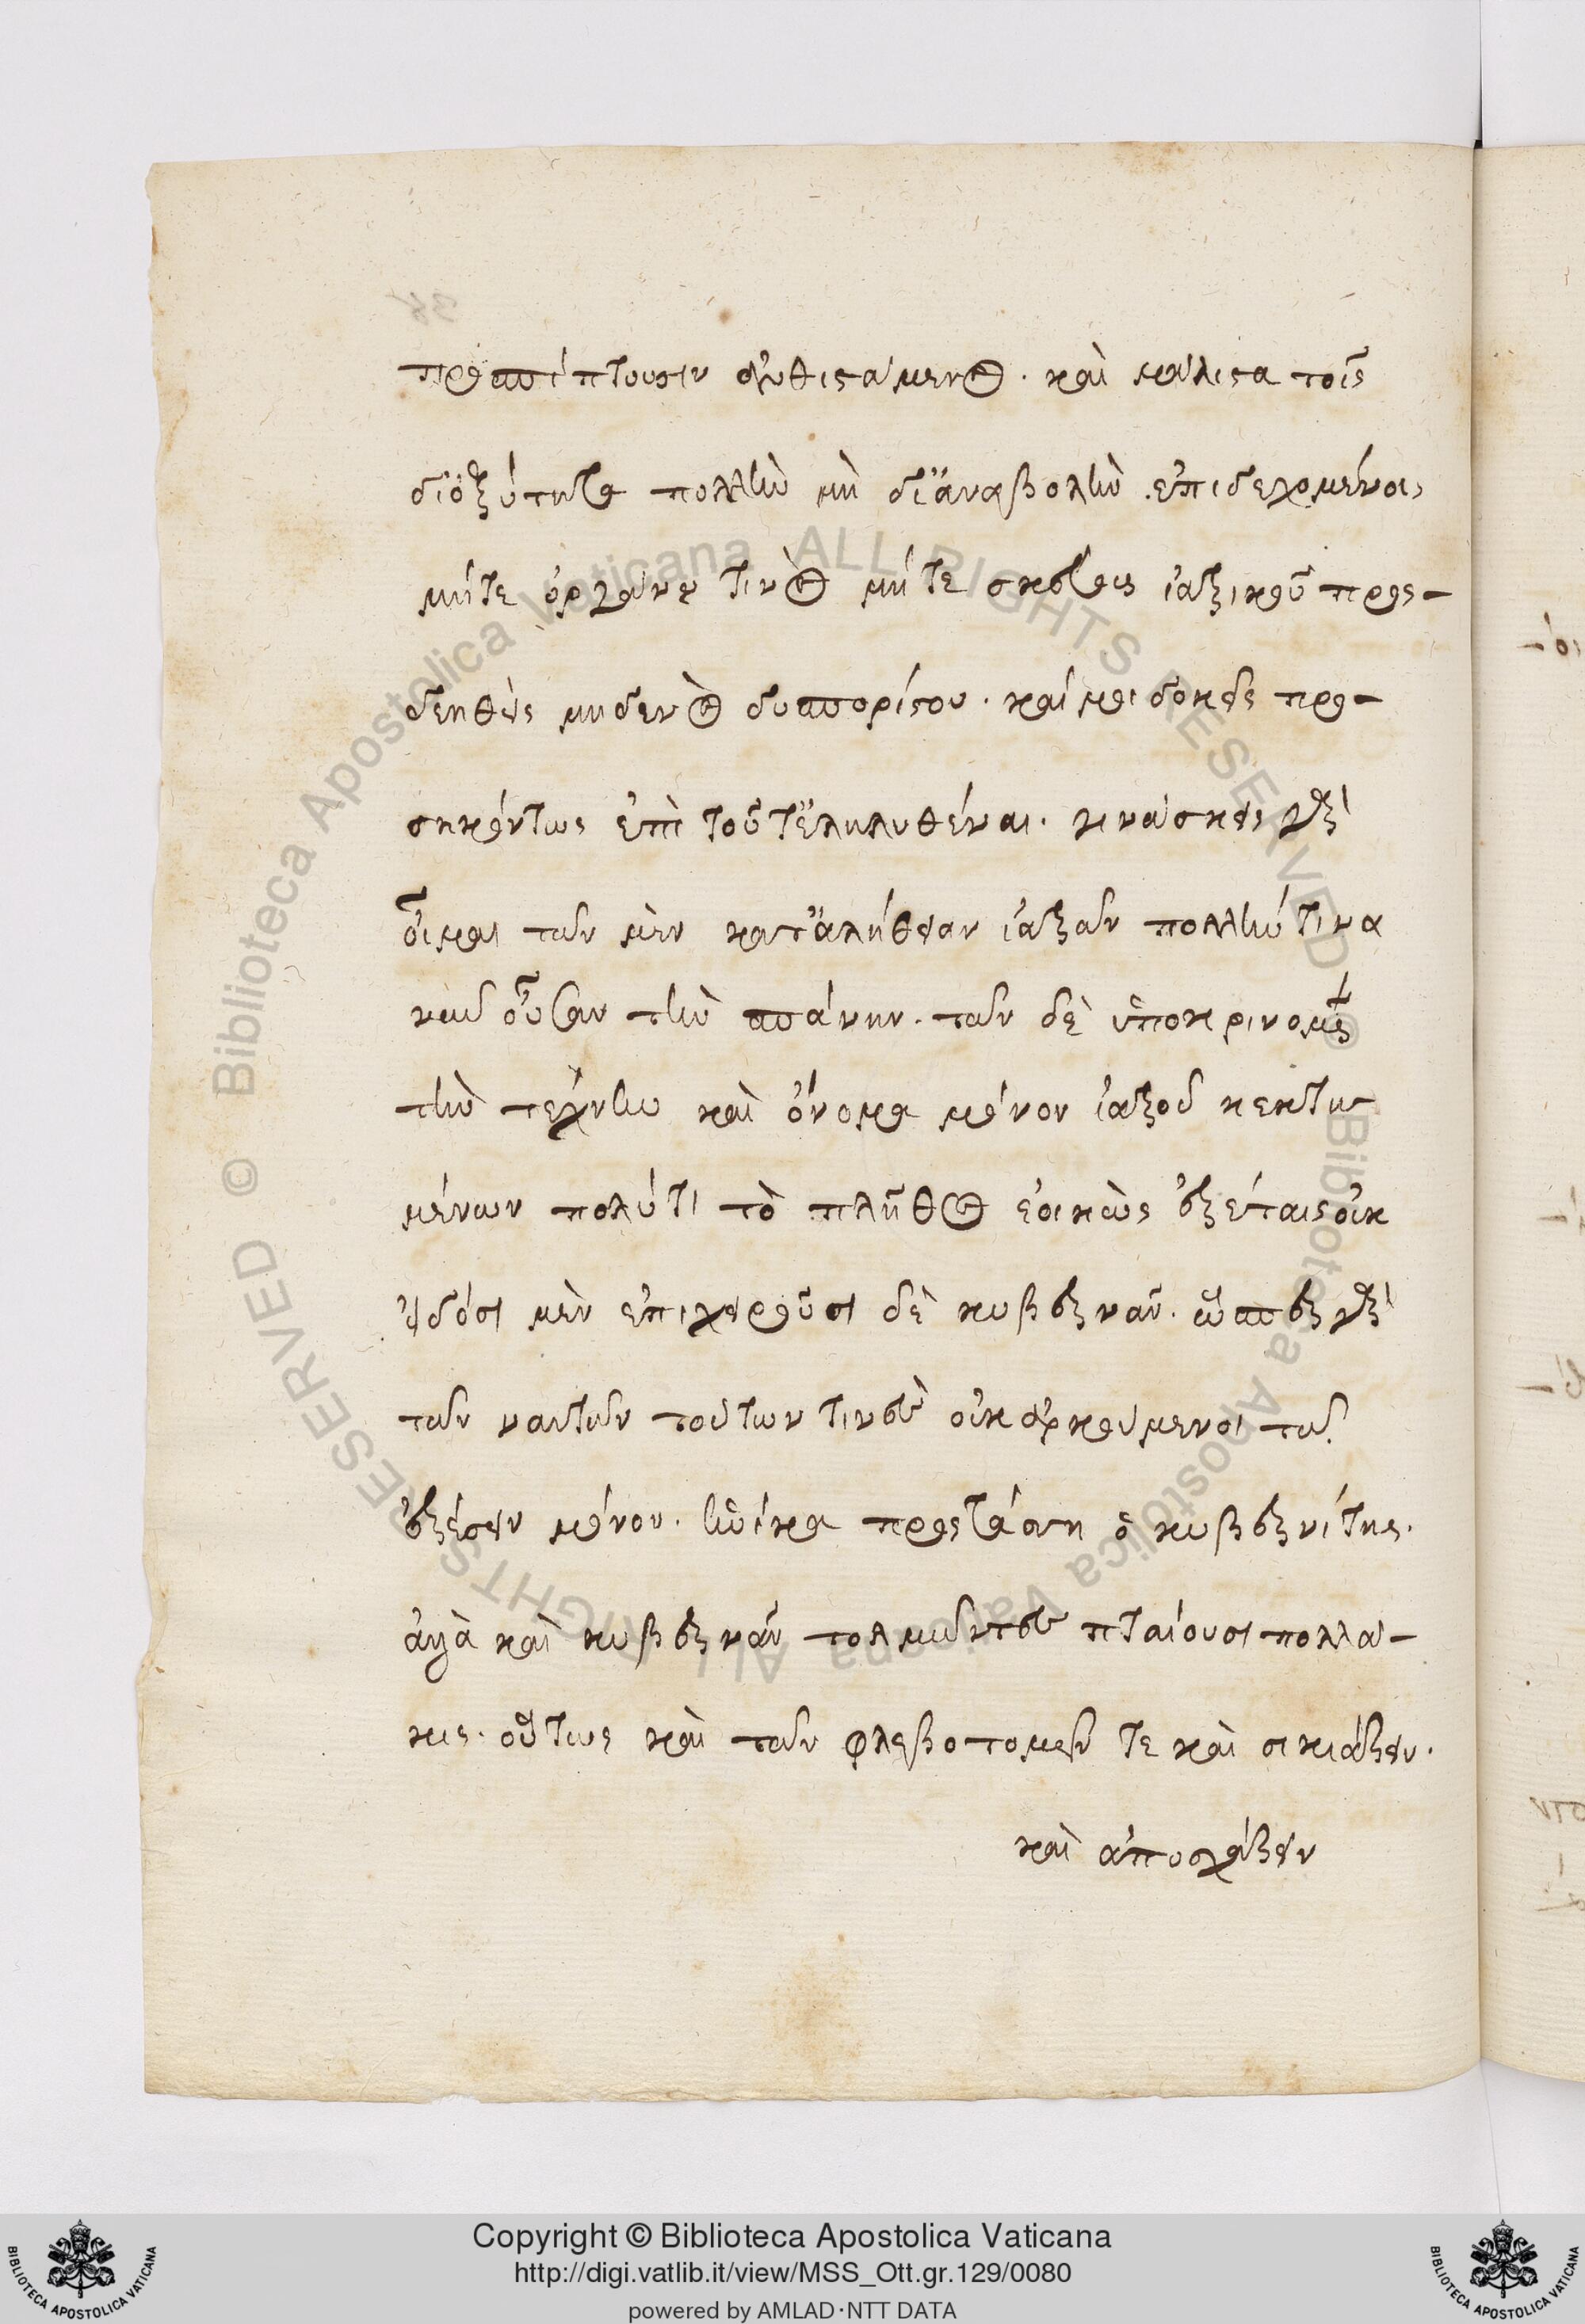 προσπίπτουσιν ἀνθιστάμενος. καὶ μάλιστα τοῖς
δι' ὀξύτητα πολλὴν μὴ δι' ἀναβολὴν ἐπιδεχομένοις
μήτε ὀργάνου τινὸς μήτε σκεύους ἰατρικοῦ προς-
δεηθεὶς μηδενὸς δυσπορίστου. καί μοι δοκεῖς προ-
σηκόντως ἐπὶ τοῦτ' ἐληλυθέναι. γινώσκεις γὰρ
οἶμαι τῶν μὲν κατ' ἀλήθειαν ἰατρῶν πολλήν τινα
νῦν οὖσαν τὴν σπάνιν. τῶν δὲ ὑποκρινομένων
τὴν τέχνην καὶ ὄνομα μόνον ἰατροῦ κεκτη-
μένων πολύ τι τὸ πλῆθος ἐοικὼς ἐρέταις οὐκ
εἰδόσι μὲν ἐπιχειροῦσι δὲ κυβερνᾶν. ὥσπερ γὰρ
τῶν ναυτῶν τούτων τινὲς οὐκ ἀρκούμενοι τῷ
ἐρέσσειν μόνον. ἡνίκα προστάσσῃ ὁ κυβερνήτης.
ἀλλὰ καὶ κυβερνᾶν τολμῶντες πταίουσι πολλά-
κις. οὕτως καὶ τῶν φλεβοτομεῖν τε καὶ σικυάζειν.
καὶ ἀποσχάζειν
Copyright © Biblioteca Apostolica Vaticana
http://digi.vatlib.it/view/MSS_Ott.gr.129/0080
powered by AMLAD·NTT DATA